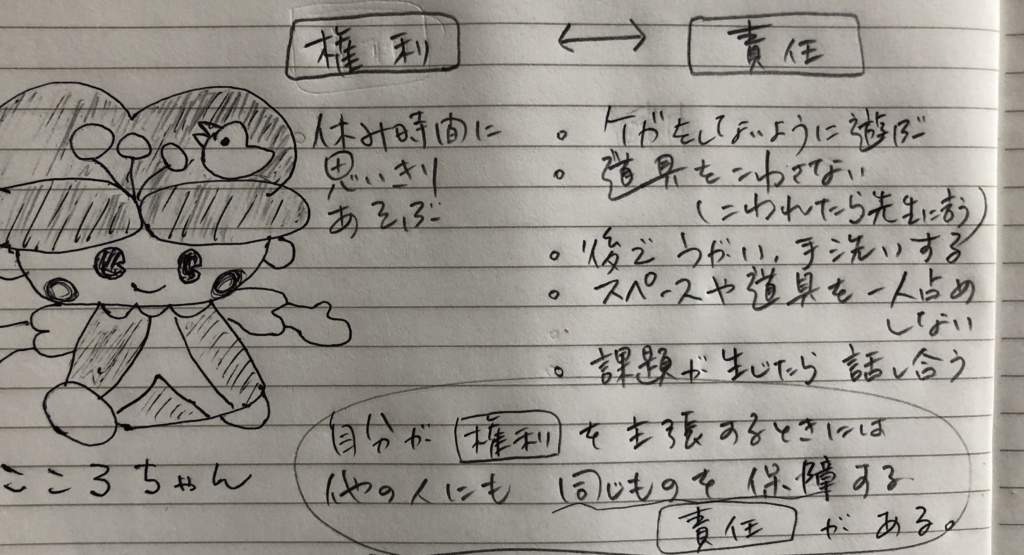 権利 ↔ 責任
休み時間に
思いきり
あそぶ
。ケガをしないように遊ぶ
。道具をこわさない
(こわれたら先生に言う)
。後でうがい、手洗いする
。スペースや道具を一人占め
しない
。課題が生じたら話し合う
こころちゃん
自分が権利を主張するときには
他の人にも同じものを保障する
責任がある。